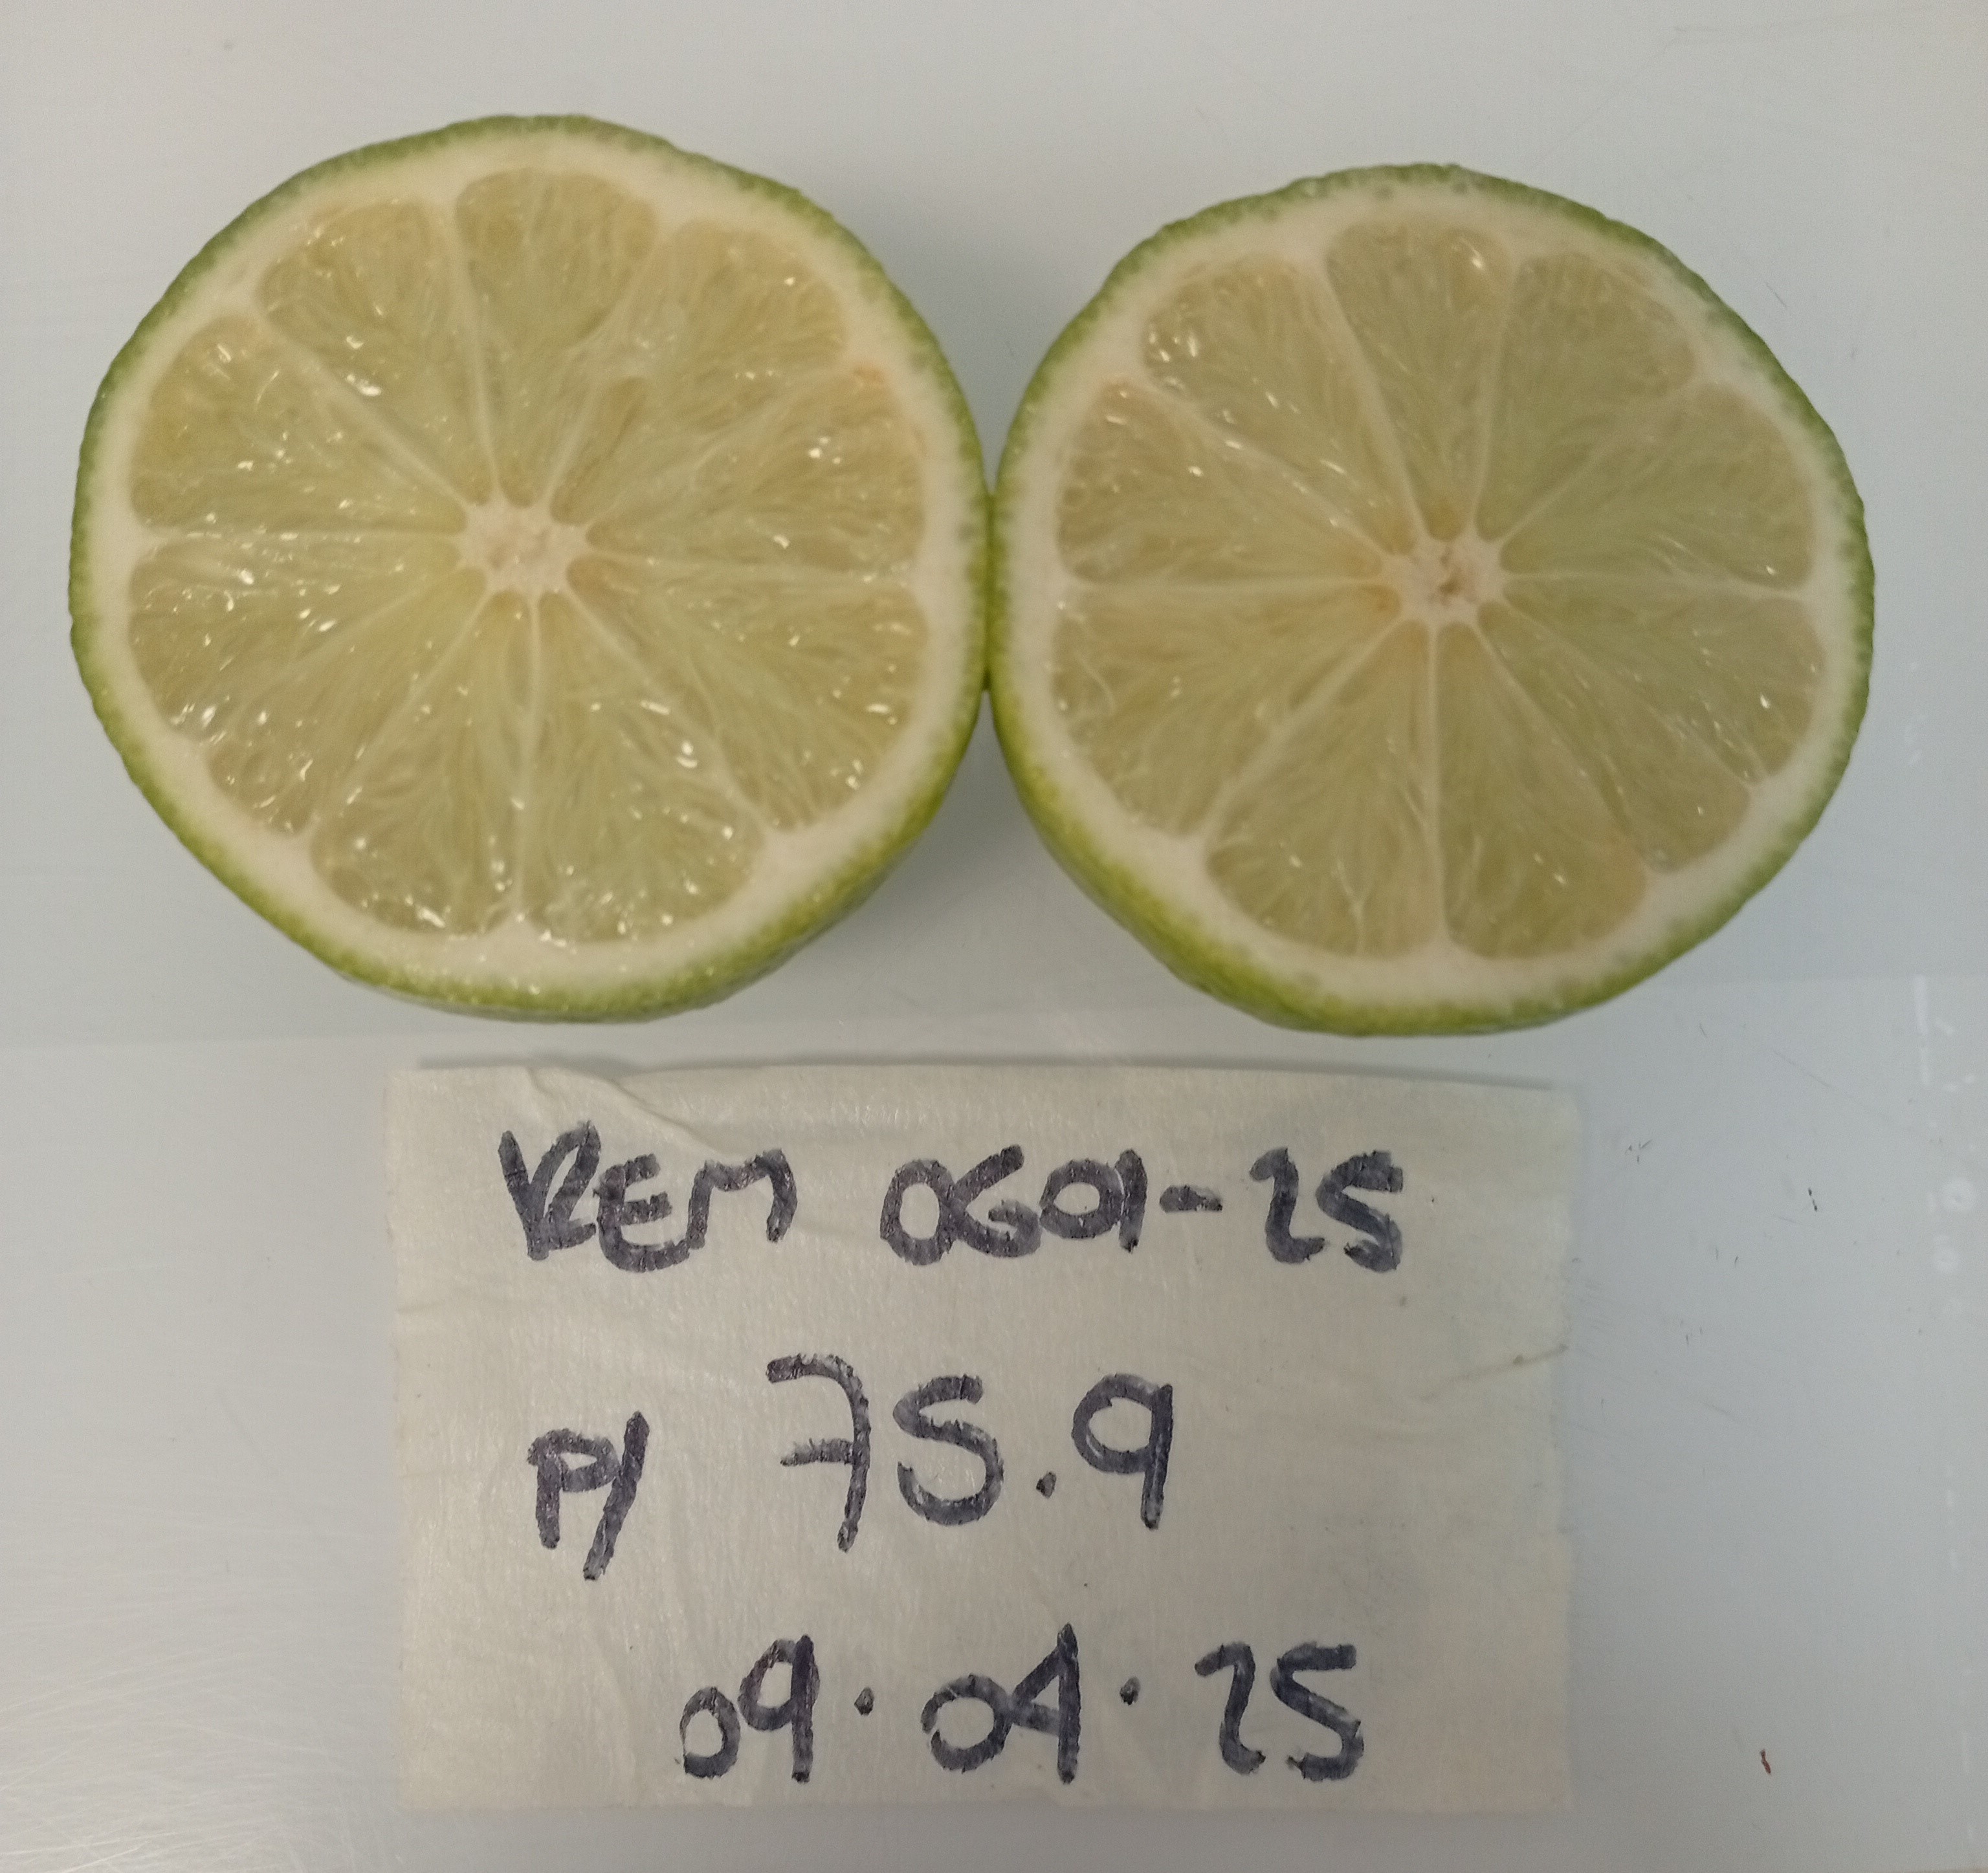 REM 0601-25
P/ 75.9
09.04.25